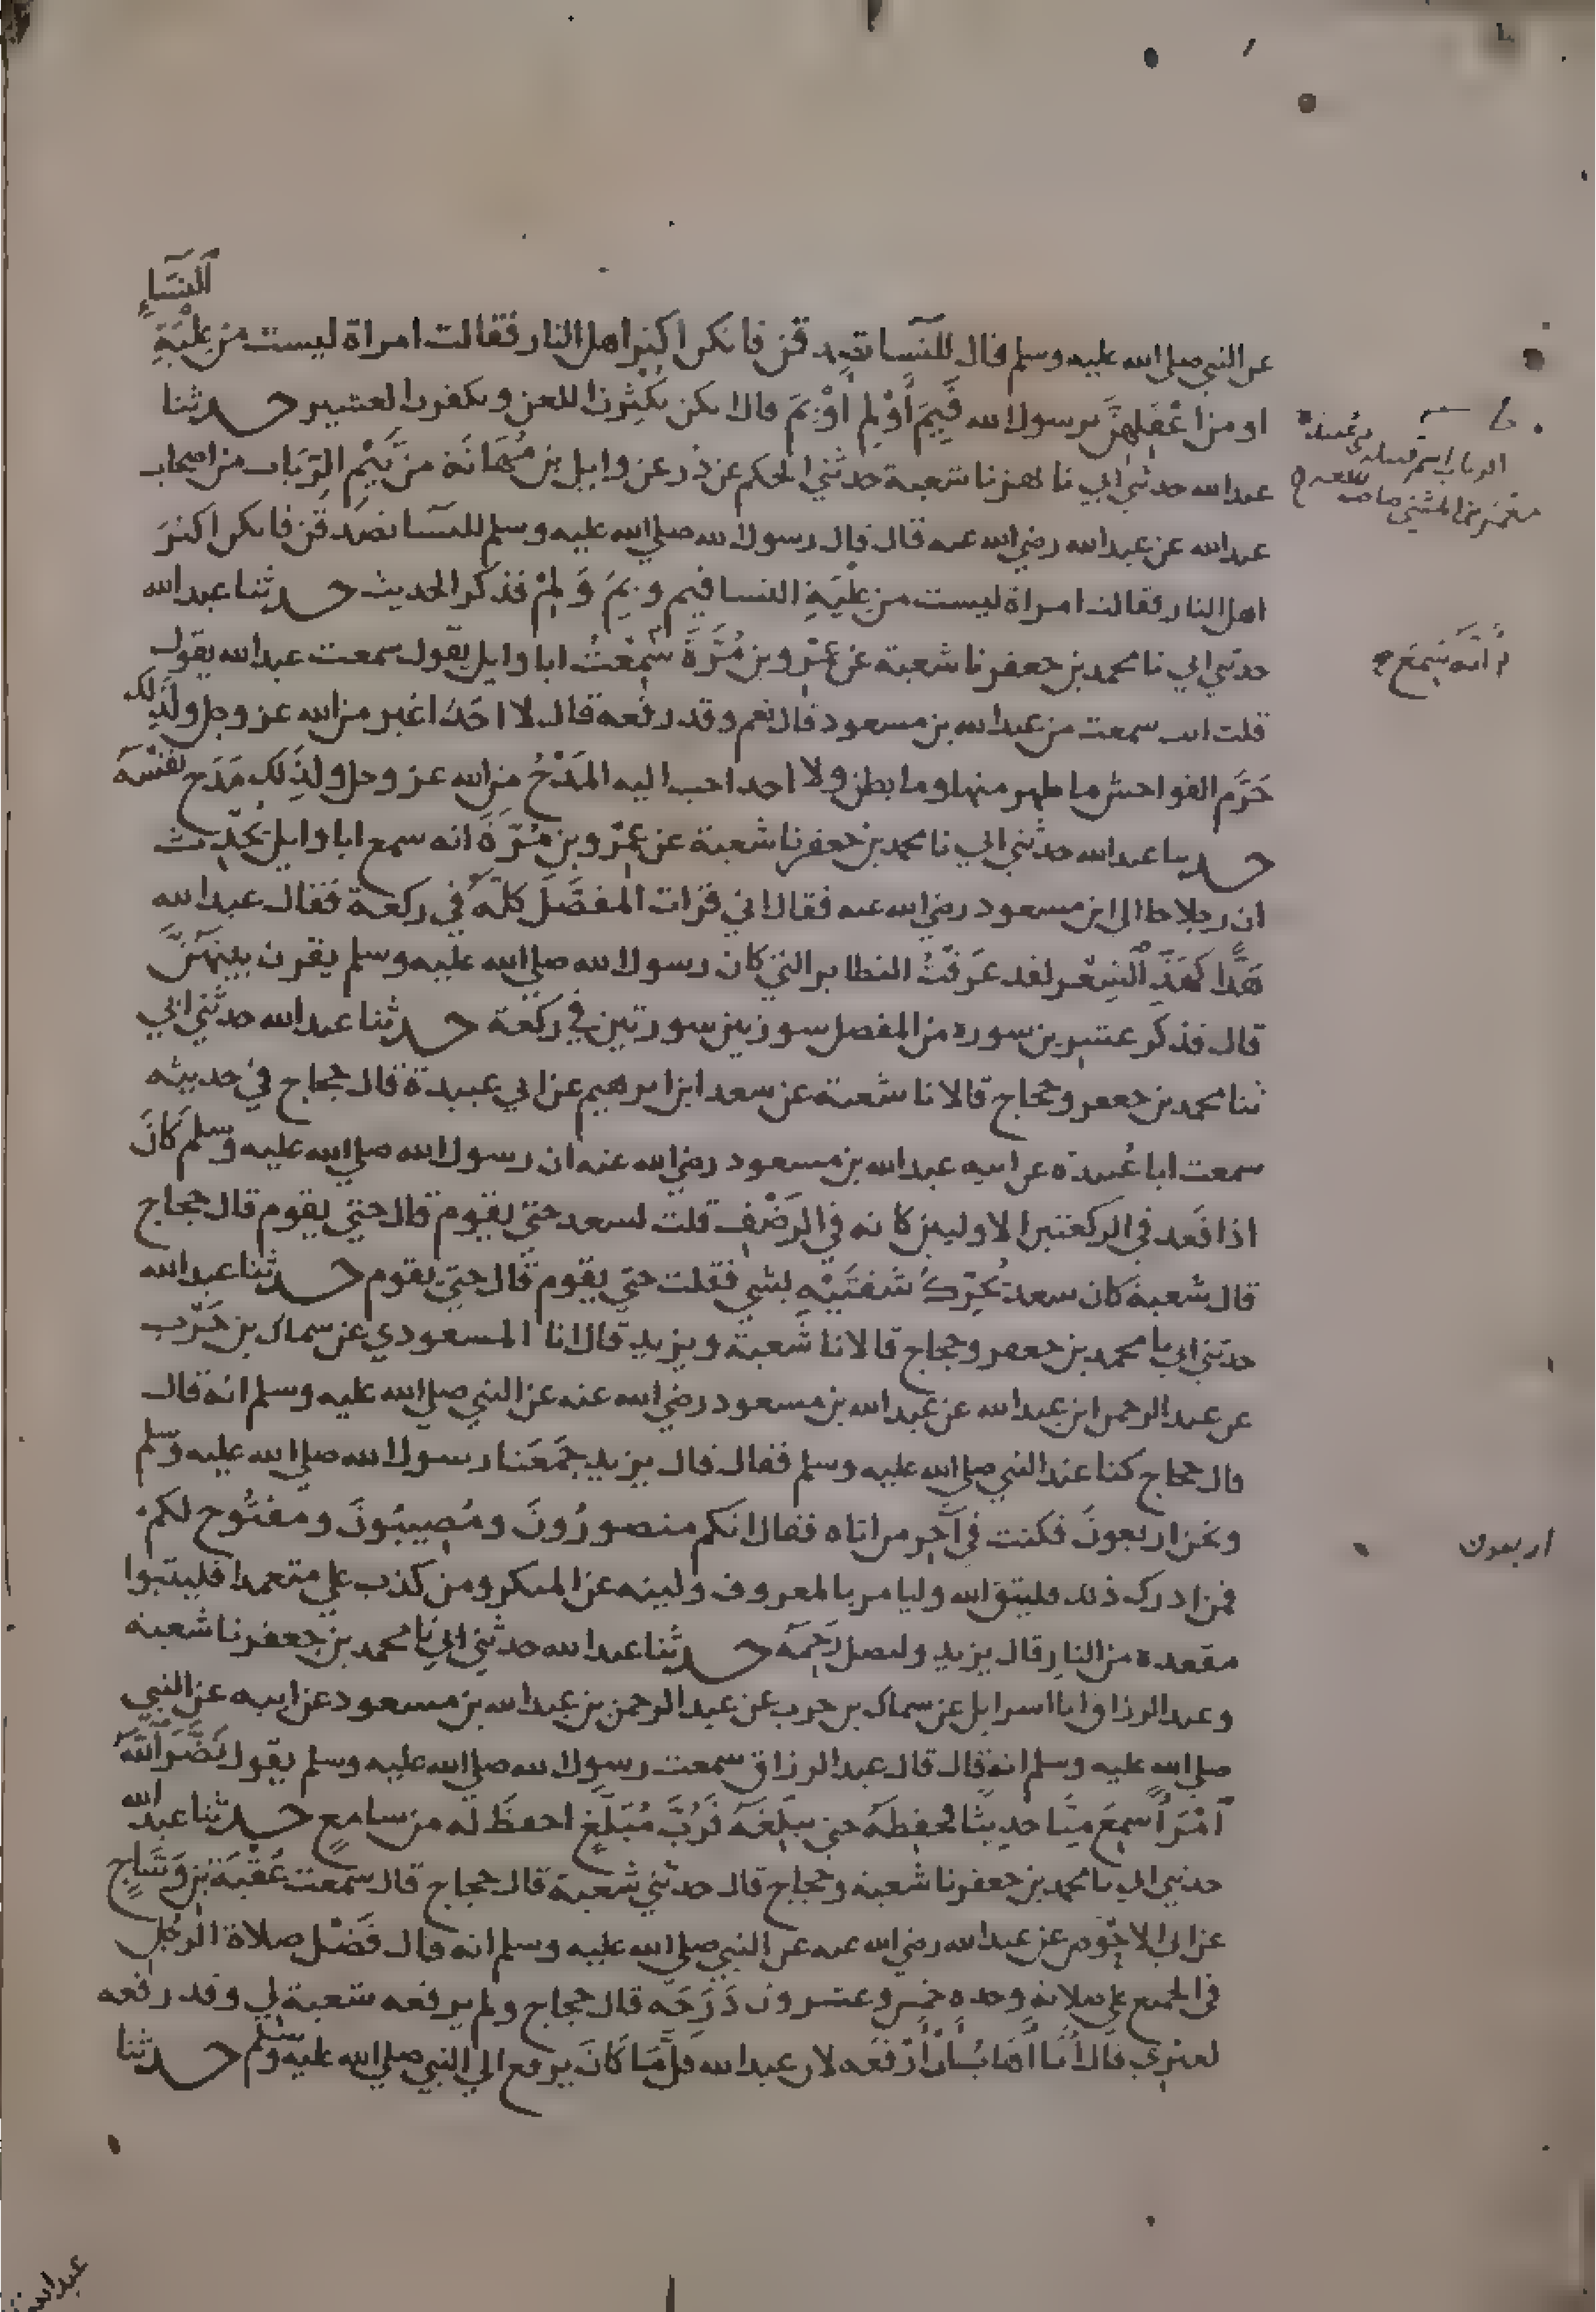 النساء
عن النبي صلى الله عليه وسلم قال للنسا تصدقن فانكن اكثر اهل النار فقالت امراة ليست من علية
او من اعقلهن يرسول الله فيم أو لم أو بم قال انكن تكثرن اللعن وتكفرن العشير حدثنا
عبد الله حدثني ابي نا بهز نا شعبة حدثني الحكم عن ذر عن وايل بن مهانة من تيم الرباب من اصحاب
عبد الله عن عبد الله رضي الله عنه قال قال رسول الله صلى الله عليه وسلم للنسا تصدقن فانكن اكثر
اهل النار فقالت امراة ليست من علية النسا فيم وبم ولم فذكر الحديث حدثنا عبد الله
حدثني ابي نا محمد بن جعفر نا شعبة عن عمرو بن مرة سمعت ابا وايل يقول سمعت عبد الله يقول
قلت انت سمعت من عبد الله بن مسعود قال نعم وقد رفعه قال لا احد اغير من الله عز وجل ولذلك
حرم الفواحش ما ظهر منها وما بطن ولا احد احب اليه المدح من الله عز وجل ولذلك مدح نفسه
حدثنا عبد الله حدثني ابي نا محمد بن جعفر نا شعبة عن عمرو بن مرة انه سمع ابا وايل يحدث
ان رجلا جا الى ابن مسعود رضي الله عنه فقال اني قرات المفصل كله في ركعة فقال عبد الله
هذا كهذ الشعر لقد عرفت النظاير التي كان رسول الله صلى الله عليه وسلم يقرن بينهن
قال فذكر عشرين سورة من المفصل سورتين سورتين في ركعة حدثنا عبد الله حدثني ابي
ثنا محمد بن جعفر وحجاج قالا نا شعبة عن سعد ابن ابرهيم عن ابي عبيدة قال حجاج في حديثه
سمعت ابا عبيدة عن ابيه عبد الله بن مسعود رضي الله عنه ان رسول الله صلى الله عليه وسلم كان
اذا قعد في الركعتين الاوليين كانه في الرضف قلت لسعد حتى يقوم قال حتى يقوم قال حجاج
قال شعبة كان سعد يحرك شفتيه بشي فقلت حتى يقوم قال حتى يقوم حدثنا عبد الله
حدثني ابي نا محمد بن جعفر وحجاج قالا نا شعبة ويزيد قال انا المسعودي عن سماك بن حرب
عن عبد الرحمن ابن عبد الله عن عبد الله بن مسعود رضي الله عنه عن النبي صلى الله عليه وسلم انه قال
قال حجاج كنا عند النبي صلى الله عليه وسلم فقال قال يزيد جمعنا رسول الله صلى الله عليه وسلم
ونحن اربعون فكنت في آخر من اتاه فقال انكم منصورون ومصيبون ومفتوح لكم
فمن ادرك ذلك فليتق الله وليامر بالمعروف ولينه عن المنكر ومن كذب علي متعمدا فليتبوا
مقعده من النار قال يزيد وليصل رحمه حدثنا عبد الله حدثني ابي نا محمد بن جعفر نا شعبة
وعبد الرزاق انا اسرايل عن سماك بن حرب عن عبد الرحمن بن عبد الله بن مسعود عن ابيه عن النبي
صلى الله عليه وسلم انه قال قال عبد الرزاق سمعت رسول الله صلى الله عليه وسلم يقول نضر الله
امرأ سمع منا حديثا فحفظه حتى يبلغه فرب مبلغ احفظ له من سامع حدثنا عبد الله
حدثني ابي نا محمد بن جعفر نا شعبة وحجاج قال حدثني شعبة قال حجاج قال سمعت عقبة بن وساج
عن ابي الاحوص عن عبد الله رضي الله عنه عن النبي صلى الله عليه وسلم انه قال فضل صلاة الرجل
في الجميع على صلاته وحده خمس وعشرون درجة قال حجاج ولم يرفعه شعبة لي وقد رفعه
لغيري قال أنا أهاب أن أرفعه لان عبد الله قل ما كان يرفع الى النبي صلى الله عليه وسلم حدثنا
الرباب اسم قبيله
معمر بن المثنى صاحب اللغه
انه سمع
اربعون